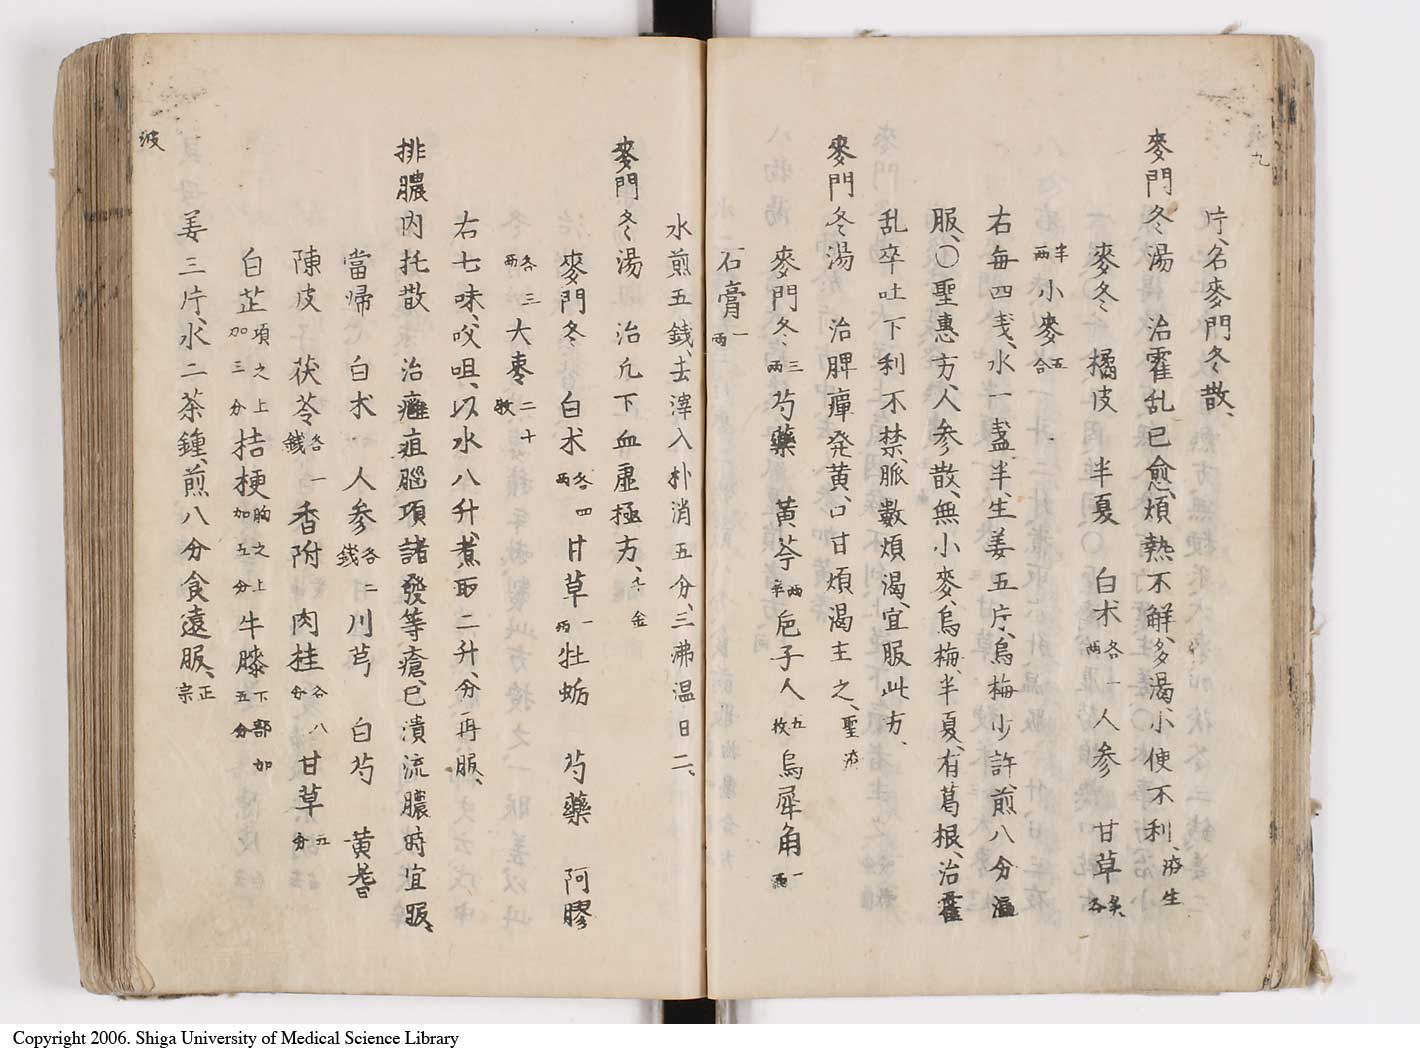 九
片、名麥門冬散、
麥門冬湯 治霍乱已愈、煩熱不解、多渴、小便不利、済生
麥冬 橘皮 半夏 白朮各一两 人参 甘草各
半两 小麥五合
右每四戔、水一盞半、生姜五片、烏梅少許、煎八分温
服、〇聖惠方、人参散、無小麥、烏梅、半夏、有葛根、治霍
乱卒吐下利不禁、脈數煩渴、宜服此方、
麥門冬湯 治脾癉発黄、口甘煩渴主之、聖済
麥門冬三两 芍藥 黄芩两半 巵子人五枚 烏犀角一两
石膏一两
水煎五錢、去滓入朴消五分、三沸温日二、
麥門冬湯 治凢下血虚極方、千金
麥門冬 白朮各四两 甘草一两 牡蛎 芍藥 阿膠
各三两 大棗二十枚
右七味、㕮咀、以水八升、煮取二升、分再服、
排膿内托散 治癰疽腦項諸發等瘡、已潰流膿時宜服、
當帰 白朮 人参各二錢 川芎 白芍 黄耆
陳皮 茯苓各一錢 香附 肉桂各八分 甘草五分
白芷項之上加三分 桔梗胸之上加五分 牛膝下部加五分
姜三片、水二茶鍾、煎八分食遠服、正宗
波
Copyright 2006. Shiga University of Medical Science Library